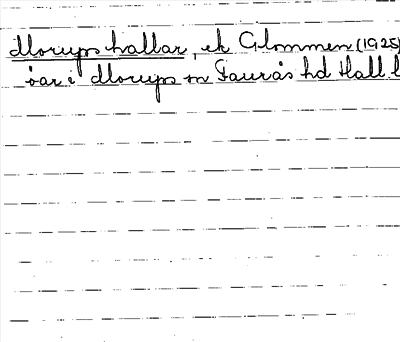 Morups hallar, ek Glommen (1925)
öar i Morups sn Faurås hd Hall l